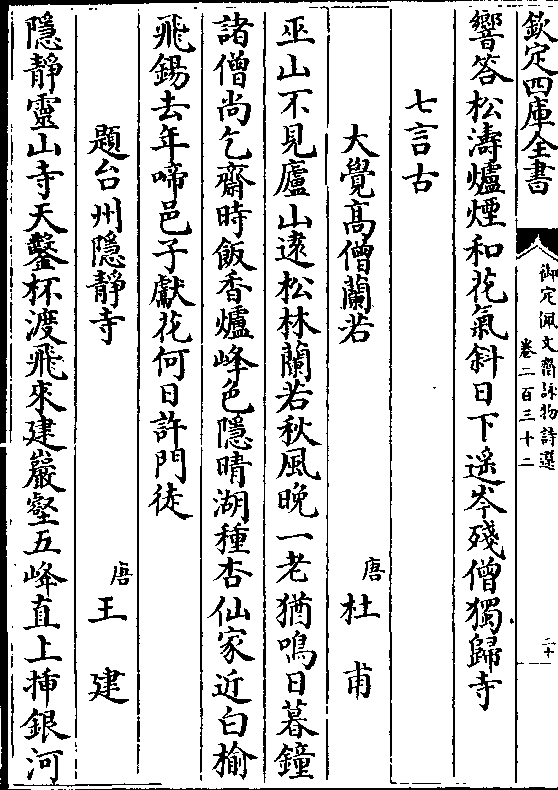 欽定四庫全書
御定佩文齋詠物詩選
卷二百三十二
二十
響答松濤爐煙和花氣斜日下遥岑殘僧獨歸寺
七言古
大覺髙僧蘭若
唐 杜甫
巫山不見廬山逺松林蘭若秋風晚一老猶鳴日暮鐘
諸僧尚乞齋時飯香爐峰色隱晴湖種杏仙家近白榆
飛錫去年啼邑子獻花何日許門徒
題台州隱靜寺
唐 王建
隱靜靈山寺天鑿杯渡飛來建巖壑五峰直上揷銀河